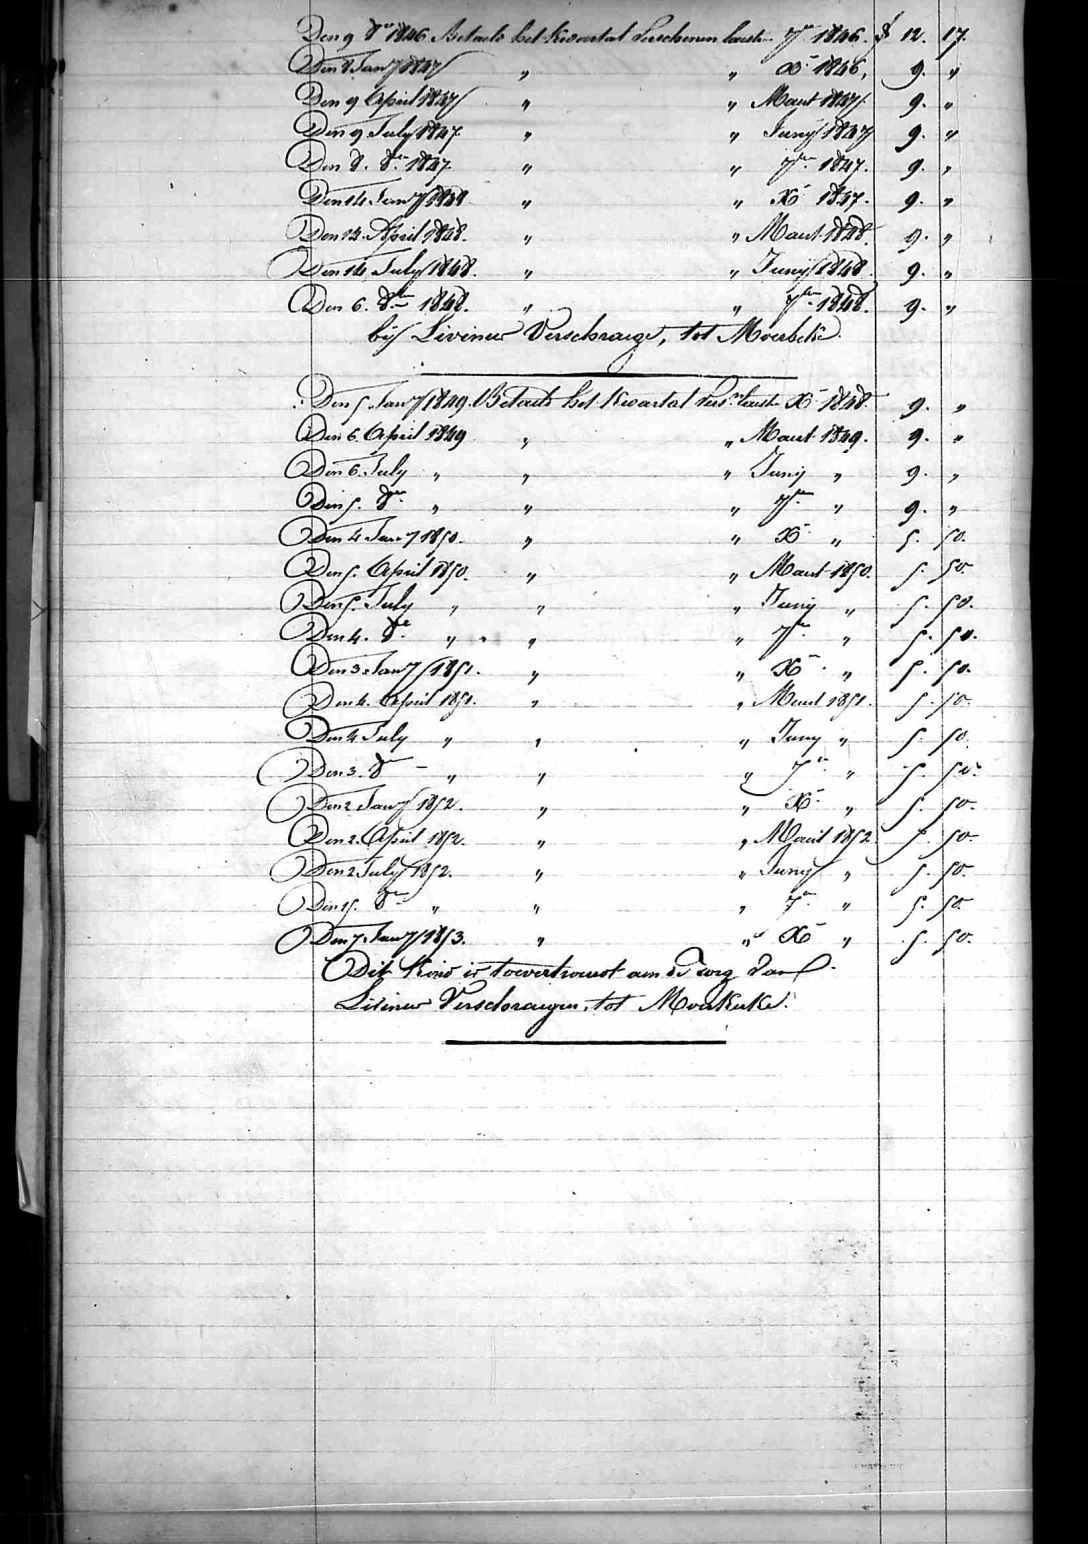 Den 9 8er 1846 Betaelt het Kwartal verschenen laeste 7er 1846. f 12. 17.
Den 8 Jany 1847 " " X 1846. 9. "
Den 9 April 1847 " " Maert 1847. 9. "
Den 9 July 1847. " " Juny 1847 9. "
Den 8. 8er 1847. " " 7er 1847. 9. "
Den 14 Jany 1848 " " X 1847. 9. "
Den 14. April 1848. " " Maert 1848. 9. "
Den 14 July 1848. " " Juny 1848. 9. "
Den 6. 8er 1848. " " 7er 1848. 9. "
bij Livinus Verschraege, tot Moerbeke.
Den 5 Jany 1849. Betaelt het Kwartal vers. laeste X 1848. 9. "
Den 6 April 1849 " " Maert 1849. 9. "
Den 6 July " " " Juny " 9. "
Den 5. 8er " " " 7er " 9. "
Den 4 Jany 1850. " " X " 5. 50.
Den 5. April 1850. " " Maert 1850. 5. 50.
Den 5. July " " " Juny " 5. 50.
Den 4. 8er " " " 7er " 5. 50.
Den 3 Jany 1851. " " X " 5. 50.
Den 4. April 1851. " " Maert 1851. 5. 50.
Den 4 July " " " Juny " 5. 50.
Den 3. 8er " " " 7er " 5. 50.
Den 2 Jany 1852. " " X " 5. 50.
Den 2. April 1852. " " Maert 1852 5. 50.
Den 2 July 1852. " " Juny " 5. 50.
Den 15. 8er " " " 7er " 5. 50.
Den 7. Jany 1853. " " X " 5. 50.
Dit Kind is toevertrouwt aen de zorg van
Livinus Verschraegen, tot Moerkerke.